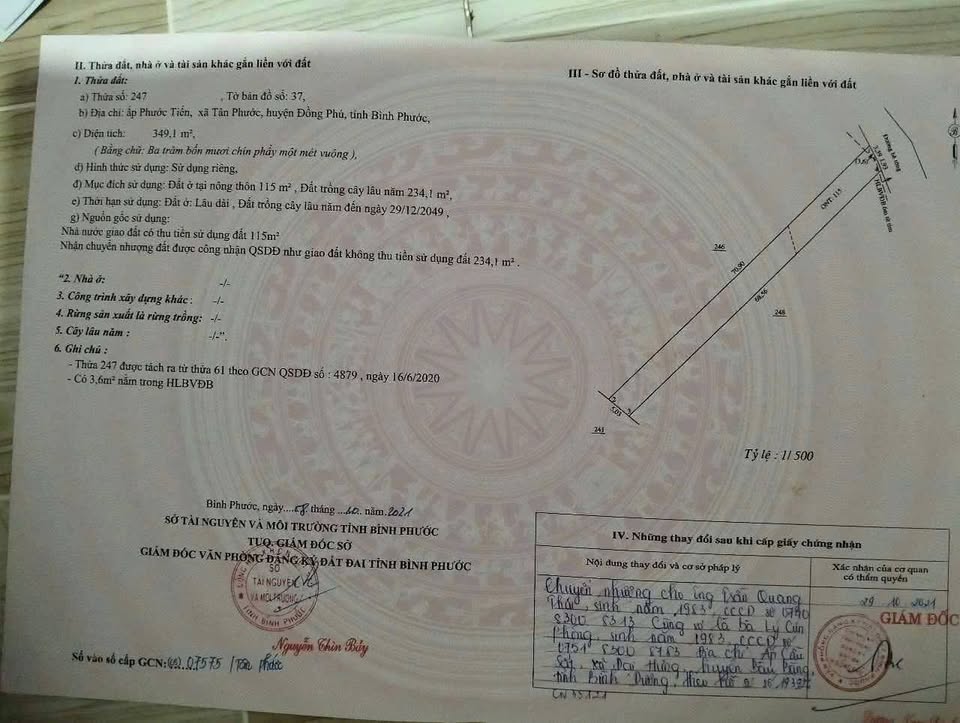 II. Thửa đất, nhà ở và tài sản khác gắn liền với đất
1. Thửa đất:
a) Thửa số: 247 , Tờ bản đồ số: 37,
b) Địa chỉ: ấp Phước Tiến, xã Tân Phước, huyện Đồng Phú, tỉnh Bình Phước,
c) Diện tích: 349,1 m²,
( Bằng chữ: Ba trăm bốn mươi chín phẩy một mét vuông ),
d) Hình thức sử dụng: Sử dụng riêng,
đ) Mục đích sử dụng: Đất ở tại nông thôn 115 m² , Đất trồng cây lâu năm 234,1 m²,
e) Thời hạn sử dụng: Đất ở: Lâu dài , Đất trồng cây lâu năm đến ngày 29/12/2049 ,
g) Nguồn gốc sử dụng:
Nhà nước giao đất có thu tiền sử dụng đất 115m²
Nhận chuyển nhượng đất được công nhận QSDĐ như giao đất không thu tiền sử dụng đất 234,1 m² .
“2. Nhà ở: -/-
3. Công trình xây dựng khác : -/-
4. Rừng sản xuất là rừng trồng: -/-
5. Cây lâu năm : -/-”.
6. Ghi chú :
- Thửa 247 được tách ra từ thửa 61 theo GCN QSDĐ số : 4879 , ngày 16/6/2020
- Có 3,6m² nằm trong HLBVĐB
Bình Phước, ngày 08 tháng 10 năm 2021
SỞ TÀI NGUYÊN VÀ MÔI TRƯỜNG TỈNH BÌNH PHƯỚC
TUQ. GIÁM ĐỐC SỞ
GIÁM ĐỐC VĂN PHÒNG ĐĂNG KÝ ĐẤT ĐAI TỈNH BÌNH PHƯỚC
SỞ
TÀI NGUYÊN
VÀ MÔI TRƯỜNG
TỈNH BÌNH PHƯỚC
Nguyễn Thìn Bảy
Số vào sổ cấp GCN: 07575 / Tân Phước
III - Sơ đồ thửa đất, nhà ở và tài sản khác gắn liền với đất
Đường bê tông
ONT: 115
246
70,00
68,56
248
2
3
5,03
241
Tỷ lệ : 1/ 500
IV. Những thay đổi sau khi cấp giấy chứng nhận
Nội dung thay đổi và cơ sở pháp lý
Xác nhận của cơ quan
có thẩm quyền
Chuyển nhượng cho ông Trần Quang
sinh năm 1983, CCCD số
8300 8313 Cùng vợ là bà Lý Cún
Phong, sinh năm 1983, CCCD số
0751 8300 8783 Địa chỉ: Ấp Cầu
huyện Bàu Bàng,
tỉnh Bình Dương, theo hồ sơ số
29 10 2021
GIÁM ĐỐC